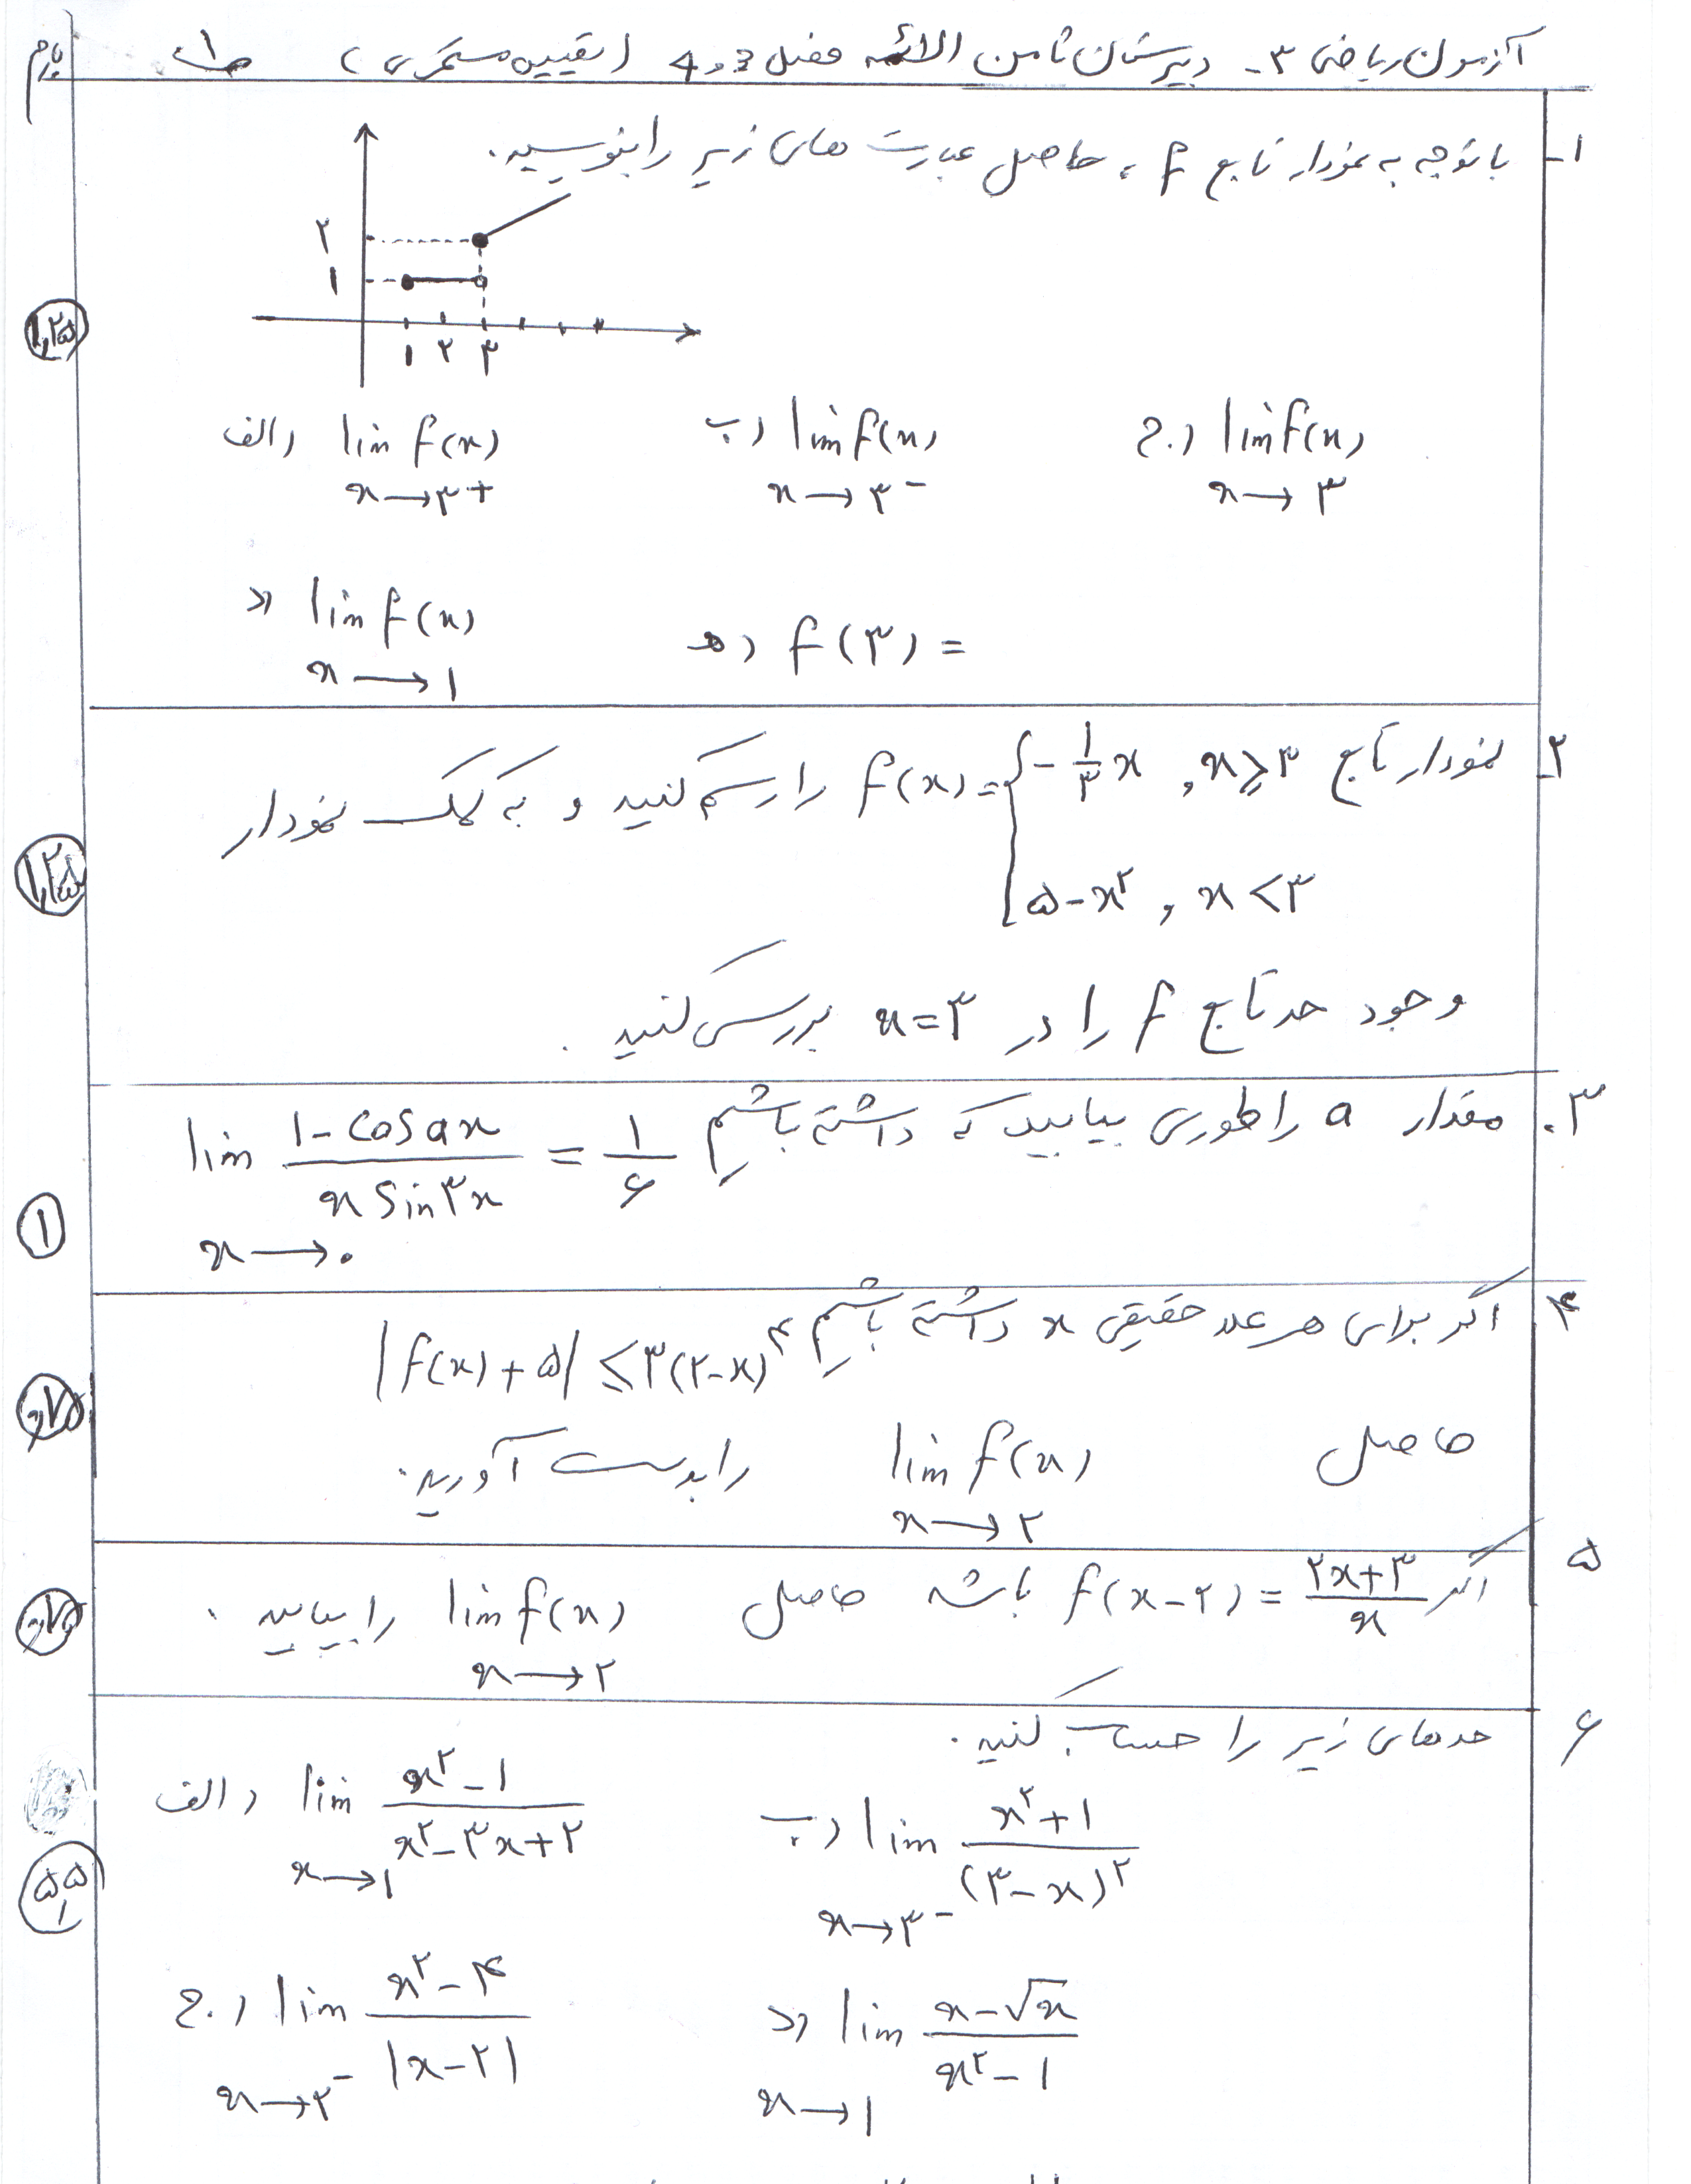 بارم
آزمون ریاضی ۳- دبیرستان ثامن الائمه فصل 3 و 4 (تقییم مستمر ی) ص۱
۱- با توجه به نمودار تابع f ، حاصل عبارت های زیر را بنویسید.
۲
۱
۱ ۲ ۳
۱٫۲۵
الف) lim f(x) x→۳+ ب) lim f(x) x→۳- ج) lim f(x) x→۳
د) lim f(x) x→۱ ه) f(۳) =
۲- نمودار تابع f(x) = { -۱/۳ x , x ⩾ ۳ ; ۵-x² , x < ۳ را رسم کنید و به کمک نمودار
۱٫۲۵
وجود حد تابع f را در x=۳ بررسی کنید.
۳. مقدار a را طوری بیابید که داشته باشیم lim x→۰ (۱-cos ax)/(x sin ۳x) = ۱/۶
۱
۴ اگر برای هر عدد حقیقی x داشته باشیم |f(x)+۵| ≤ ۳(۲-x)⁴
۰٫۷۵
حاصل lim f(x) x→۲ را بدست آورید.
۵ اگر f(x-۲) = (۲x+۳)/x باشد حاصل lim f(x) x→۲ را بیابید.
۰٫۷۵
۶ حدهای زیر را حساب کنید.
الف) lim x→۱ (x²-۱)/(x²-۳x+۲) ب) lim x→۳- (x²+۱)/(۳-x)²
ج) lim x→۲- (x²-۴)/|x-۲| د) lim x→۱ (x-√x)/(x²-۱)